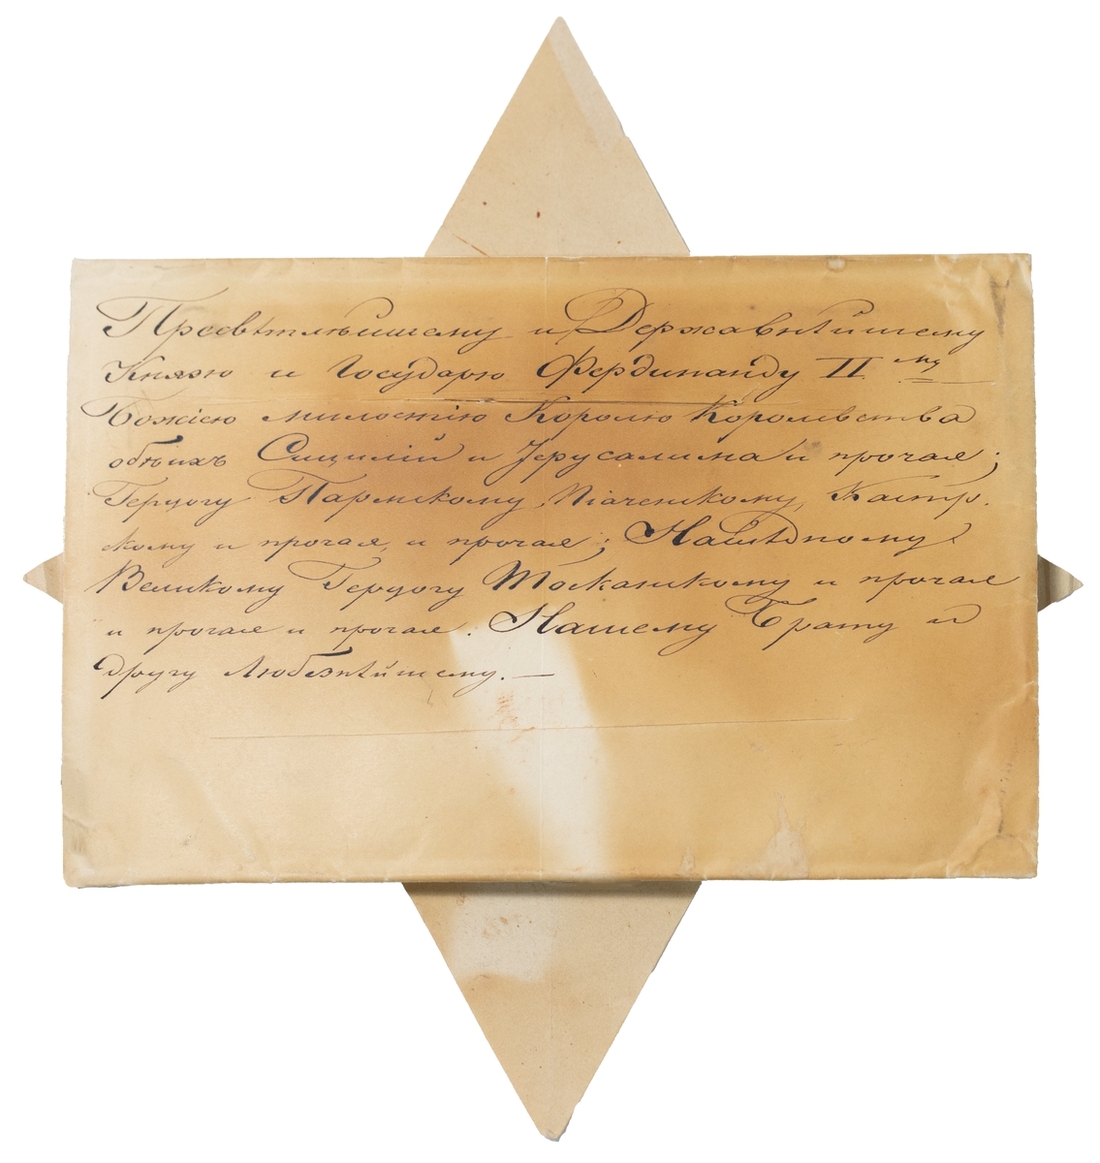 Пресвѣтлѣйшему и Державнѣйшему
Князю и Государю Фердинанду II му
Божіею милостію Королю Королевства
обѣихъ Сицилій и Іерусалима и прочая;
Герцогу Пармскому, Піаченскому, Кастр.
скому и прочая, и прочая; Наслѣдному
Великому Герцогу Тосканскому и прочая
и прочая и прочая. Нашему Брату и
другу Любезнѣйшему. —